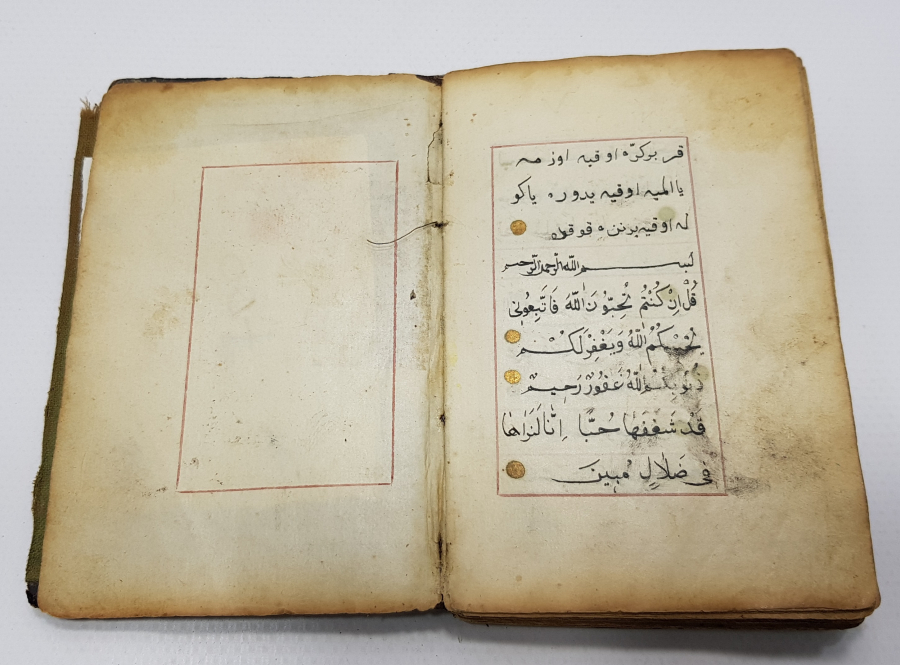 قر بوكرّه اوقيه اوزمه
يا الميه اوقيه يدوره ياكو
له اوقيه برننه قوقه
بسم الله الرحمن الرحيم
قُلْ اِنْ كُنْتُمْ تُحِبّوُنَ اللّٰهَ فَاتَّبِعُونِى
يُحْبِبْكُمُ اللّٰهُ وَيَغْفِرْلَكُمْ
ذُنُوبَكُمْ اللّٰهُ غَفُورٌ رَحِيمٌ
قَدْ شَغَفَهَا حُبًّا اِنَّا لَنَرٰاهَا
فِى ضَلَالٍ مُبِينَ